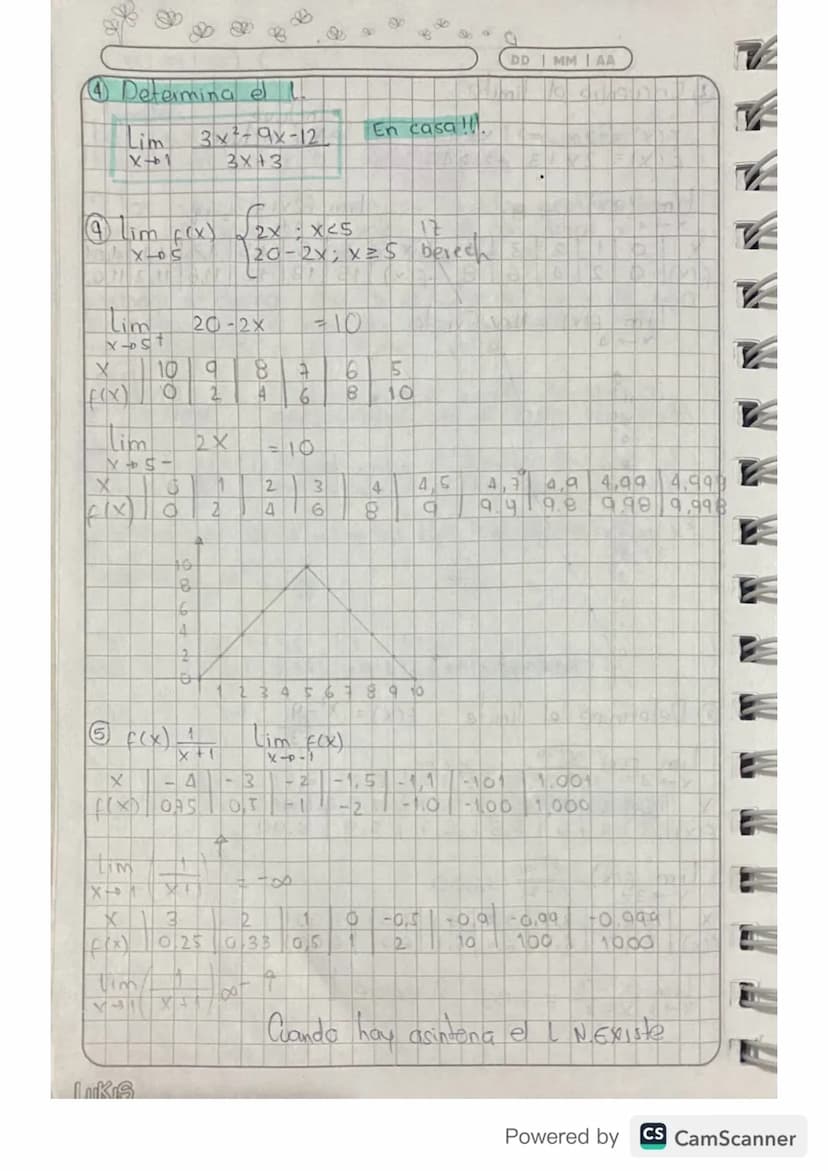 DD | MM | AA
④ Determina el l.
Lim 3x²-9x-12
x→1 3x+3
En casa!!!.
④ lim f(x) { 2x ; x<5
x→5 20-2x; x≥5
Lim 20-2x =10
x→5+
x 10 9 8 7 6 5
f(x) 0 2 4 6 8 10
lim 2x =10
x→5-
x 0 1 2 3 4 4,5 4,7 4,9 4,99 4,999
f(x) 0 2 4 6 8 9 9.4 9.8 9,98 9,998
10
8
6
4
2
0
1 2 3 4 5 6 7 8 9 10
⑤ f(x) 1/x+1 Lim f(x)
x→-1
x -4 -3 -2 -1,5 -1,1 -101 1.001
f(x) 0,75 0,5 -1 -2 -1.0 -1.00 1.000
Lim 1/x+1 = -∞
x→1
x 3 2 1 0 -0,5 -0,9 -0,99 -0,999
f(x) 0,25 0,33 0,5 1 2 10 100 1000
lim (1/x+1) ∞
x→1
Cuando hay asintona el L N.Existe
LUKAS
Powered by CS CamScanner